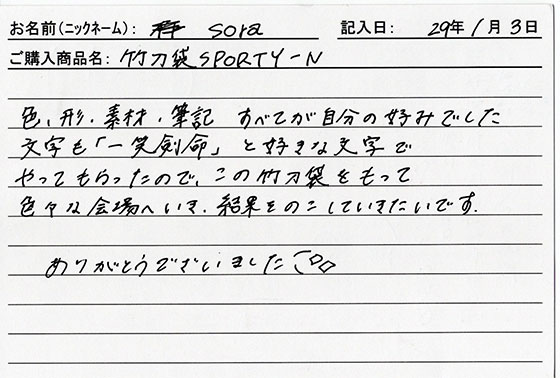 お名前(ニックネーム): sora 記入日: 29年 1月 3日
ご購入商品名: 竹刀袋SPORTY-N
色、形・素材・筆記 すべてが自分の好みでした
文字も「一笑剣命」と好きな文字で
やってもらったので、この竹刀袋をもって
色々な会場へいき、結果をのこしていきたいです。
ありがとうございました